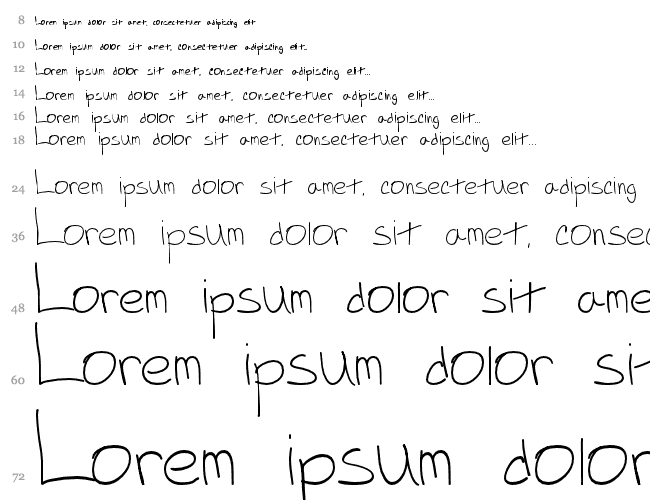 8 Lorem ipsum dolor sit amet, consectetuer adipiscing elit
10 Lorem ipsum dolor sit amet, consectetuer adipiscing elit...
12 Lorem ipsum dolor sit amet, consectetuer adipiscing elit...
14 Lorem ipsum dolor sit amet, consectetuer adipiscing elit...
16 Lorem ipsum dolor sit amet, consectetuer adipiscing elit...
18 Lorem ipsum dolor sit amet, consectetuer adipiscing elit...
24 Lorem ipsum dolor sit amet, consectetuer adipiscing
36 Lorem ipsum dolor sit amet, consec
48 Lorem ipsum dolor sit ame
60 Lorem ipsum dolor sit
72 Lorem ipsum dolor